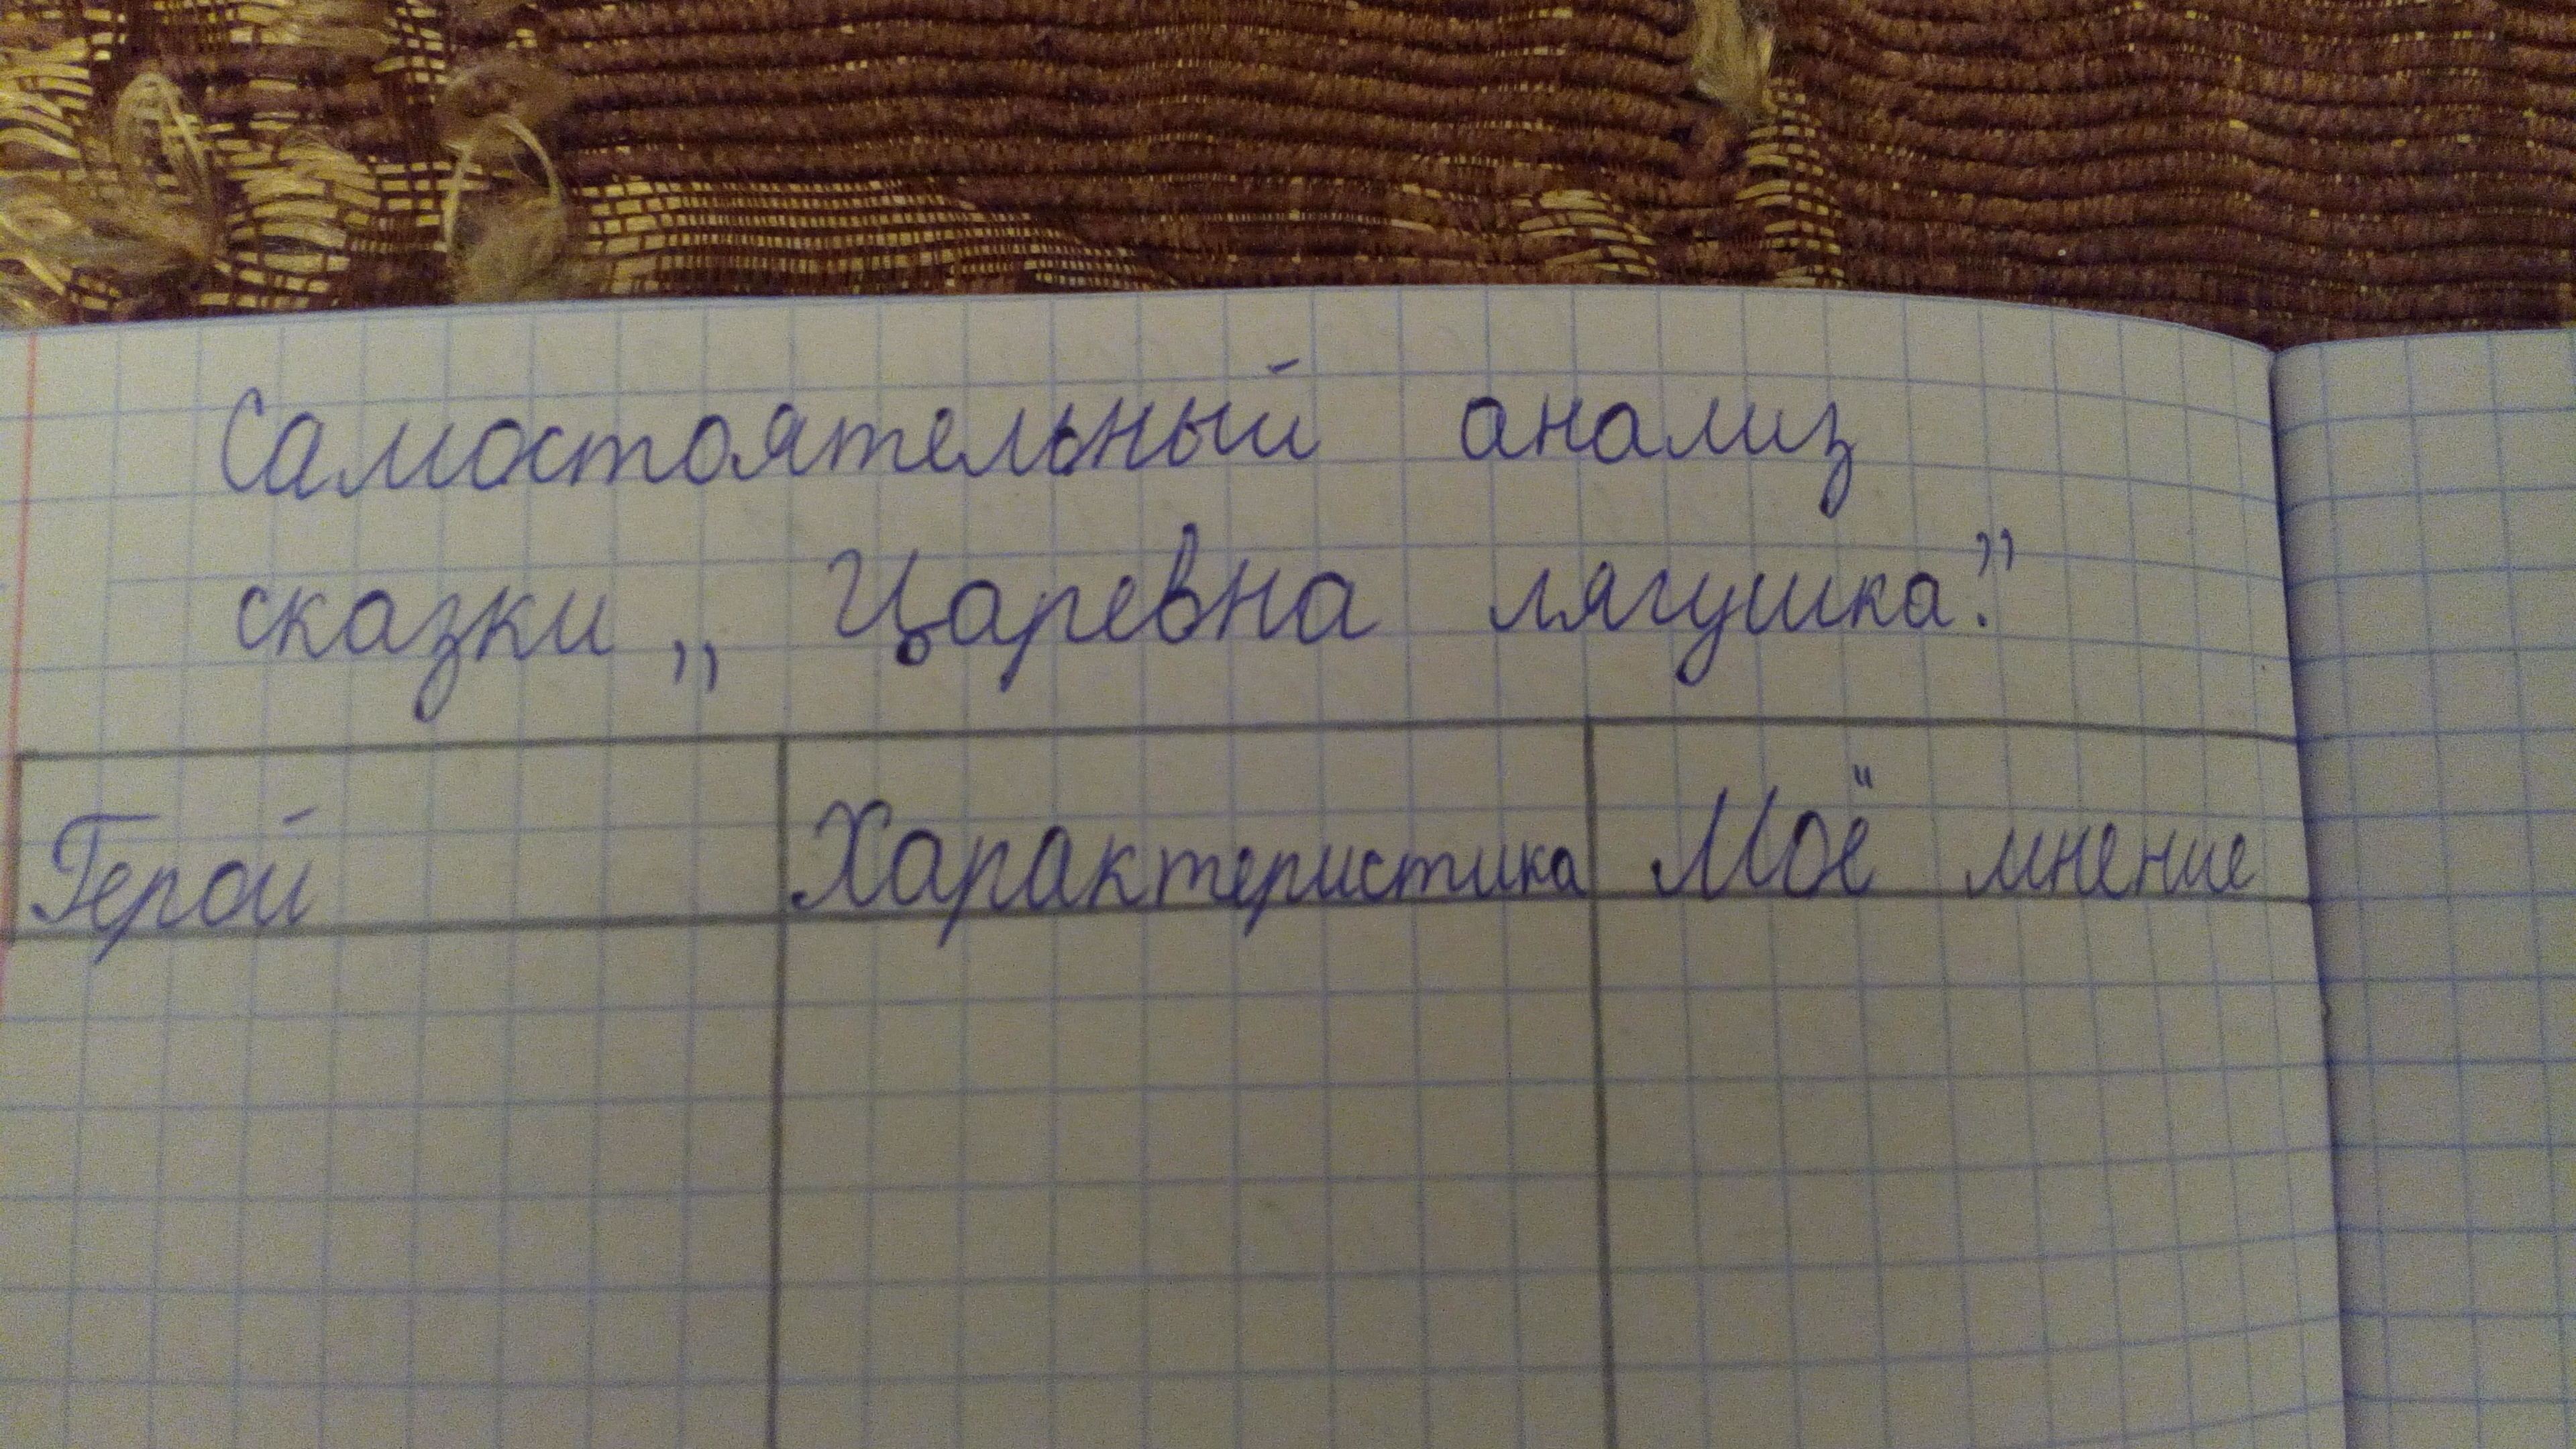 Самостоятельный анализ
сказки „ Царевна лягушка".
Герой Характеристика Моё мнение